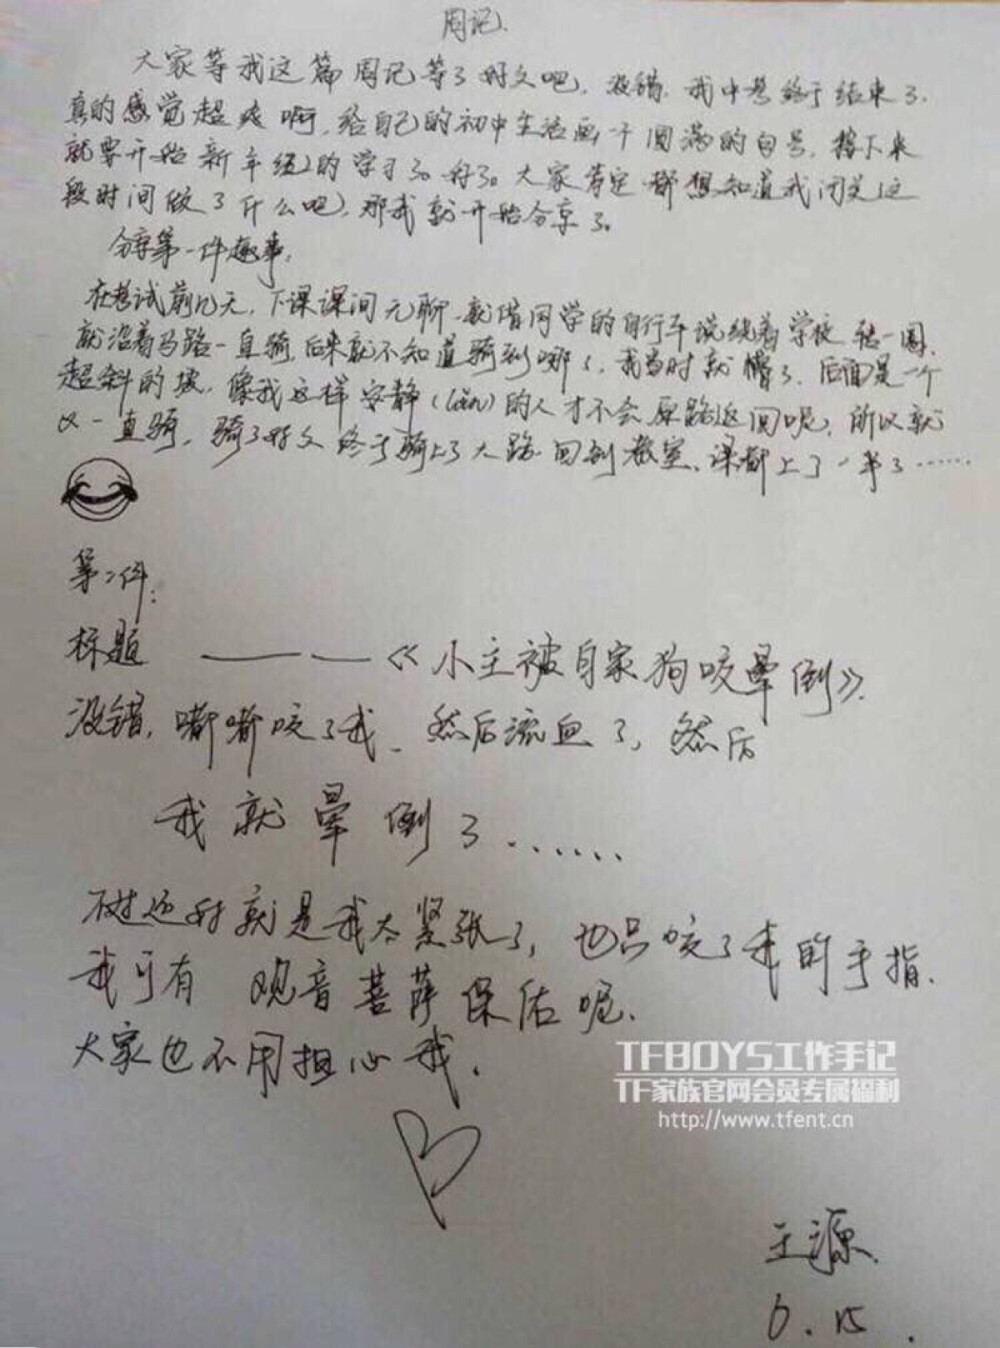 周记.
大家等我这篇周记等了好久吧，没错，我中考终于结束了.
真的感觉超爽啊，给自己的初中生活画一个圆满的句号，接下来
就要开始新年级的学习了。好了。大家肯定都想知道我闭关这
段时间做了什么吧，那我就开始分享了。
分享第一件趣事：
在考试前几天，下课课间无聊，就借同学的自行车说绕着学校骑一圈，
就沿着马路一直骑，后来就不知道骑到哪了，我当时就懵了，后面是一个
超斜的坡，像我这样安静(lǎn)的人才不会原路返回呢，所以就
又一直骑，骑了好久终于骑上了大路.回到教室，课都上了一半了……
第二件：
标题 ——— 《小主被自家狗咬晕倒》
没错，嘟嘟咬了我，然后流血了，然后
我就晕倒了……
不过还好就是我太紧张了，也只咬了我的手指.
我可有 观音菩萨保佑呢.
大家也不用担心我.
TFBOYS工作手记
TF家族官网会员专属福利
http://www.tfent.cn
王源
6.15.